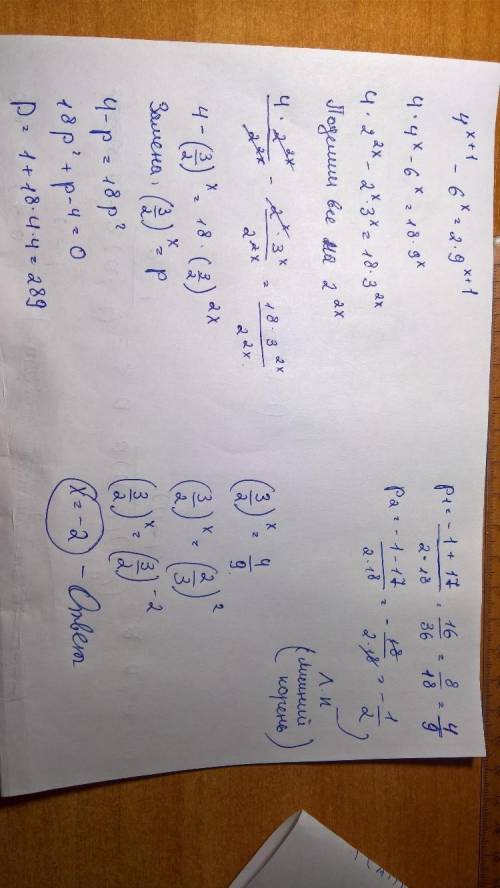 4^{x+1} - 6^x = 2·9^{x+1}
4·4^x - 6^x = 18·9^x
4·2^{2x} - 2^x·3^x = 18·3^{2x}
Поделим все на 2^{2x}
4·2^{2x}/2^{2x} - 2^x·3^x/2^{2x} = 18·3^{2x}/2^{2x}
4 - (3/2)^x = 18·(3/2)^{2x}
Замена: (3/2)^x = p
4 - p = 18p^2
18p^2 + p - 4 = 0
D = 1 + 18·4·4 = 289
p1 = -1 + 17/2·18 = 16/36 = 8/18 = 4/9
p2 = -1 - 17/2·18 = -18/2·18 = -1/2
Л.К
(лишний
корень)
(3/2)^x = 4/9
(3/2)^x = (2/3)^2
(3/2)^x = (3/2)^{-2}
x = -2 - Ответ